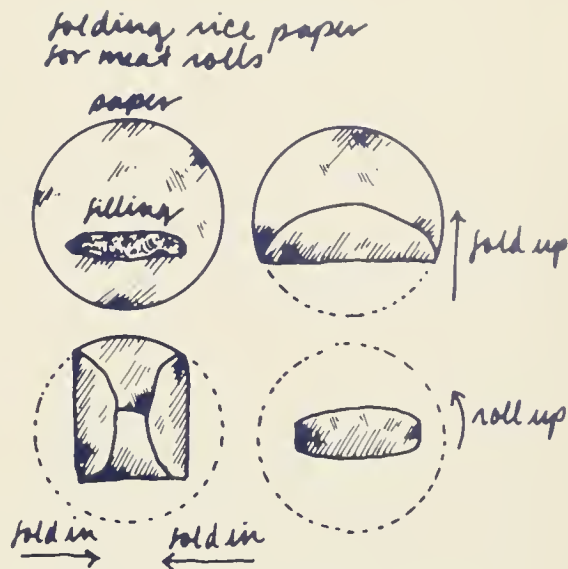 folding rice paper
for meat rolls
paper
filling
fold up
fold in
fold in
roll up